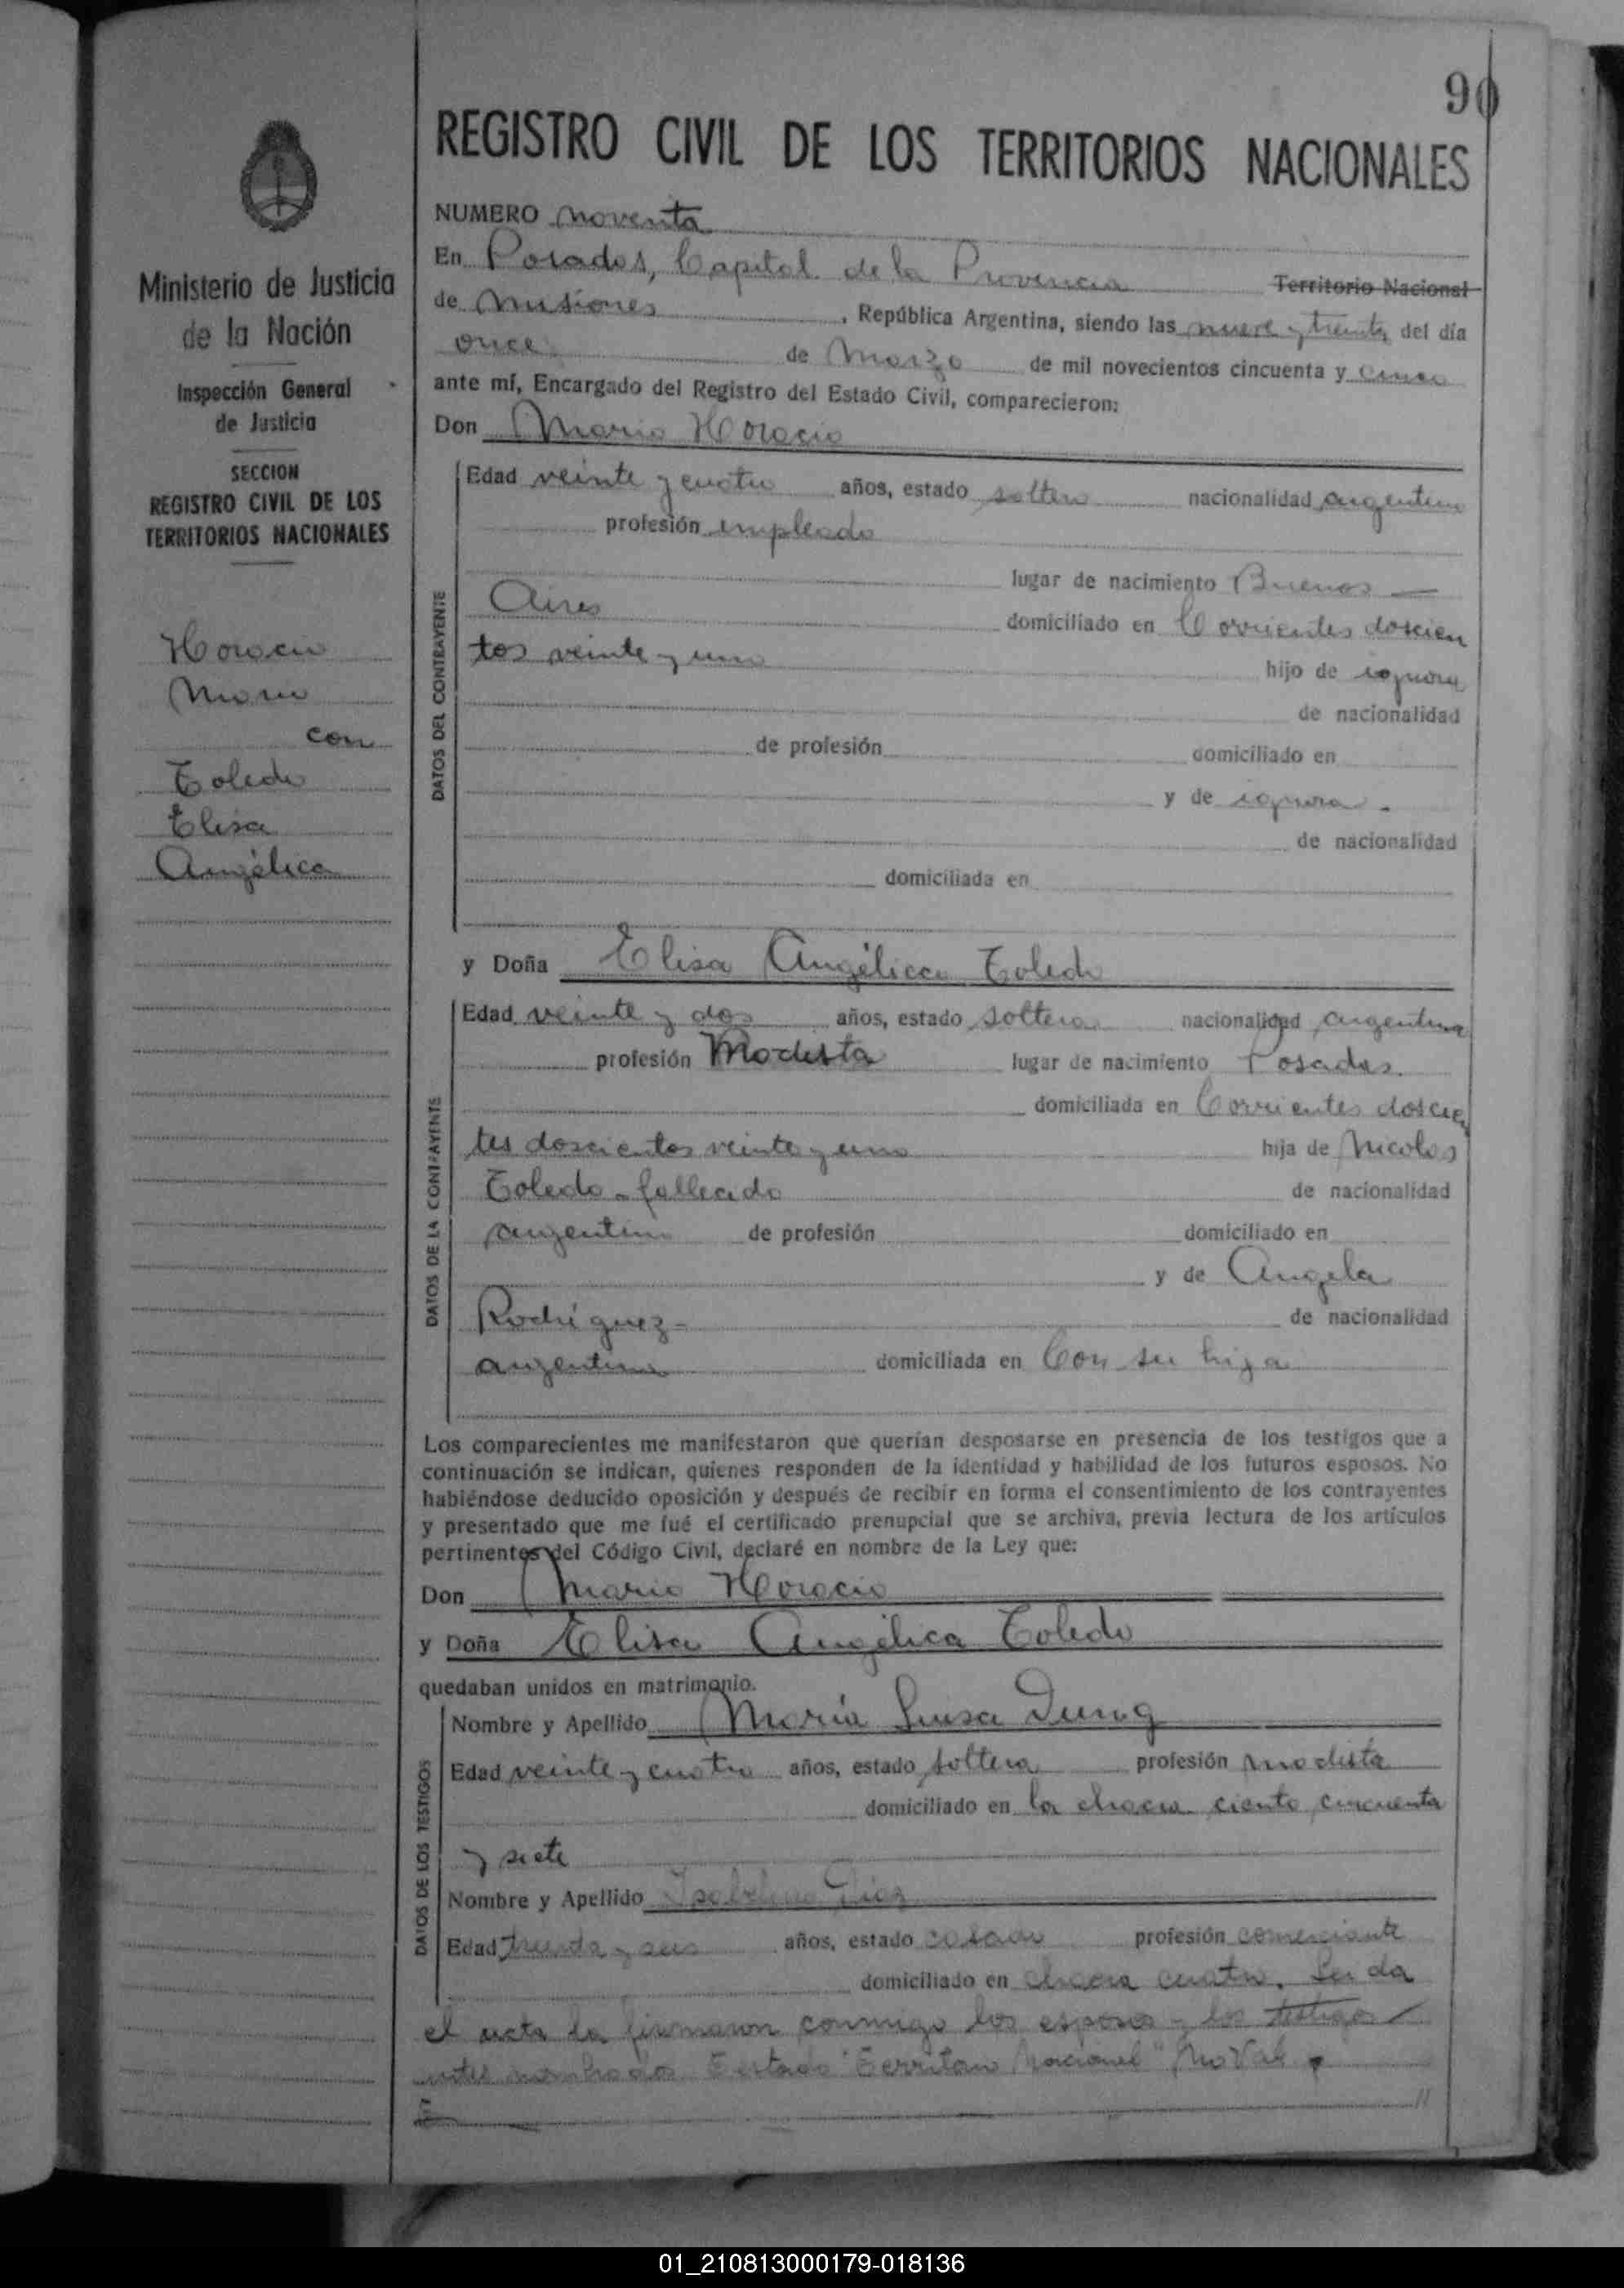 90
REGISTRO CIVIL DE LOS TERRITORIOS NACIONALES
Ministerio de Justicia
de la Nación
Inspección General
de Justicia
SECCION
REGISTRO CIVIL DE LOS
TERRITORIOS NACIONALES
Horacio
Mario
con
Toledo
Elisa
Angélica
NUMERO noventa
En Posadas, Capital de la Provincia Territorio Nacional
de Misiones, República Argentina, siendo las nueve y treinta del día
once de Marzo de mil novecientos cincuenta y cinco
ante mí, Encargado del Registro del Estado Civil, comparecieron:
Don Mario Horacio
DATOS DEL CONTRAYENTE
Edad veinte y cuatro años, estado soltero nacionalidad argentino
profesión empleado
lugar de nacimiento Buenos —
Aires domiciliado en Corrientes doscien
tos veinte y uno hijo de ignora
de nacionalidad
de profesión domiciliado en
y de ignora -
de nacionalidad
domiciliada en
y Doña Elisa Angélica Toledo
DATOS DE LA CONTRAYENTE
Edad veinte y dos años, estado soltera nacionalidad argentina
profesión Modista lugar de nacimiento Posadas.
domiciliada en Corrientes doscien
tos doscientos veinte y uno hija de Nicolas
Toledo - fallecido de nacionalidad
argentino de profesión domiciliado en
y de Angela
Rodríguez - de nacionalidad
argentina domiciliada en Con su hija
Los comparecientes me manifestaron que querían desposarse en presencia de los testigos que a
continuación se indican, quienes responden de la identidad y habilidad de los futuros esposos. No
habiéndose deducido oposición y después de recibir en forma el consentimiento de los contrayentes
y presentado que me fué el certificado prenupcial que se archiva, previa lectura de los artículos
pertinentes del Código Civil, declaré en nombre de la Ley que:
Don Mario Horacio
y Doña Elisa Angélica Toledo
quedaban unidos en matrimonio.
DATOS DE LOS TESTIGOS
Nombre y Apellido María Luisa
Edad veinte y cuatro años, estado soltera profesión modista
domiciliado en la chacra ciento cincuenta
y siete
Nombre y Apellido Isabelino Diaz
Edad treinta y seis años, estado casado profesión comerciante
domiciliado en chacra cuatro. Leida
el acta la firmaron conmigo los esposos y los testigos
antes nombrados. Testado "Territorio Nacional" No Vale
01_210813000179-018136